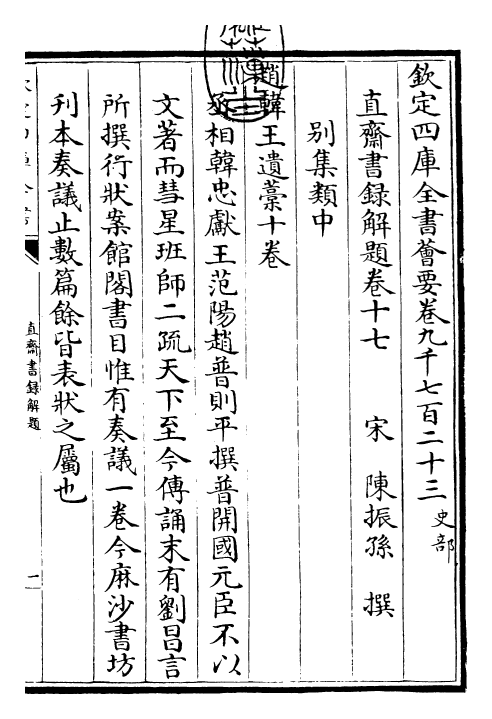 欽定四庫全書薈要卷九千七百二十三 史部
直齋書録解題卷十七 宋 陳振孫 撰
别集類中
趙韓王遺藁十卷
丞相韓忠獻王范陽趙普則平撰普開國元臣不以
文著而彗星班師二疏天下至今傳誦末有劉昌言
所撰行狀案館閣書目惟有奏議一卷今麻沙書坊
刋本奏議止數篇餘皆表狀之屬也
直齋書録解題
一